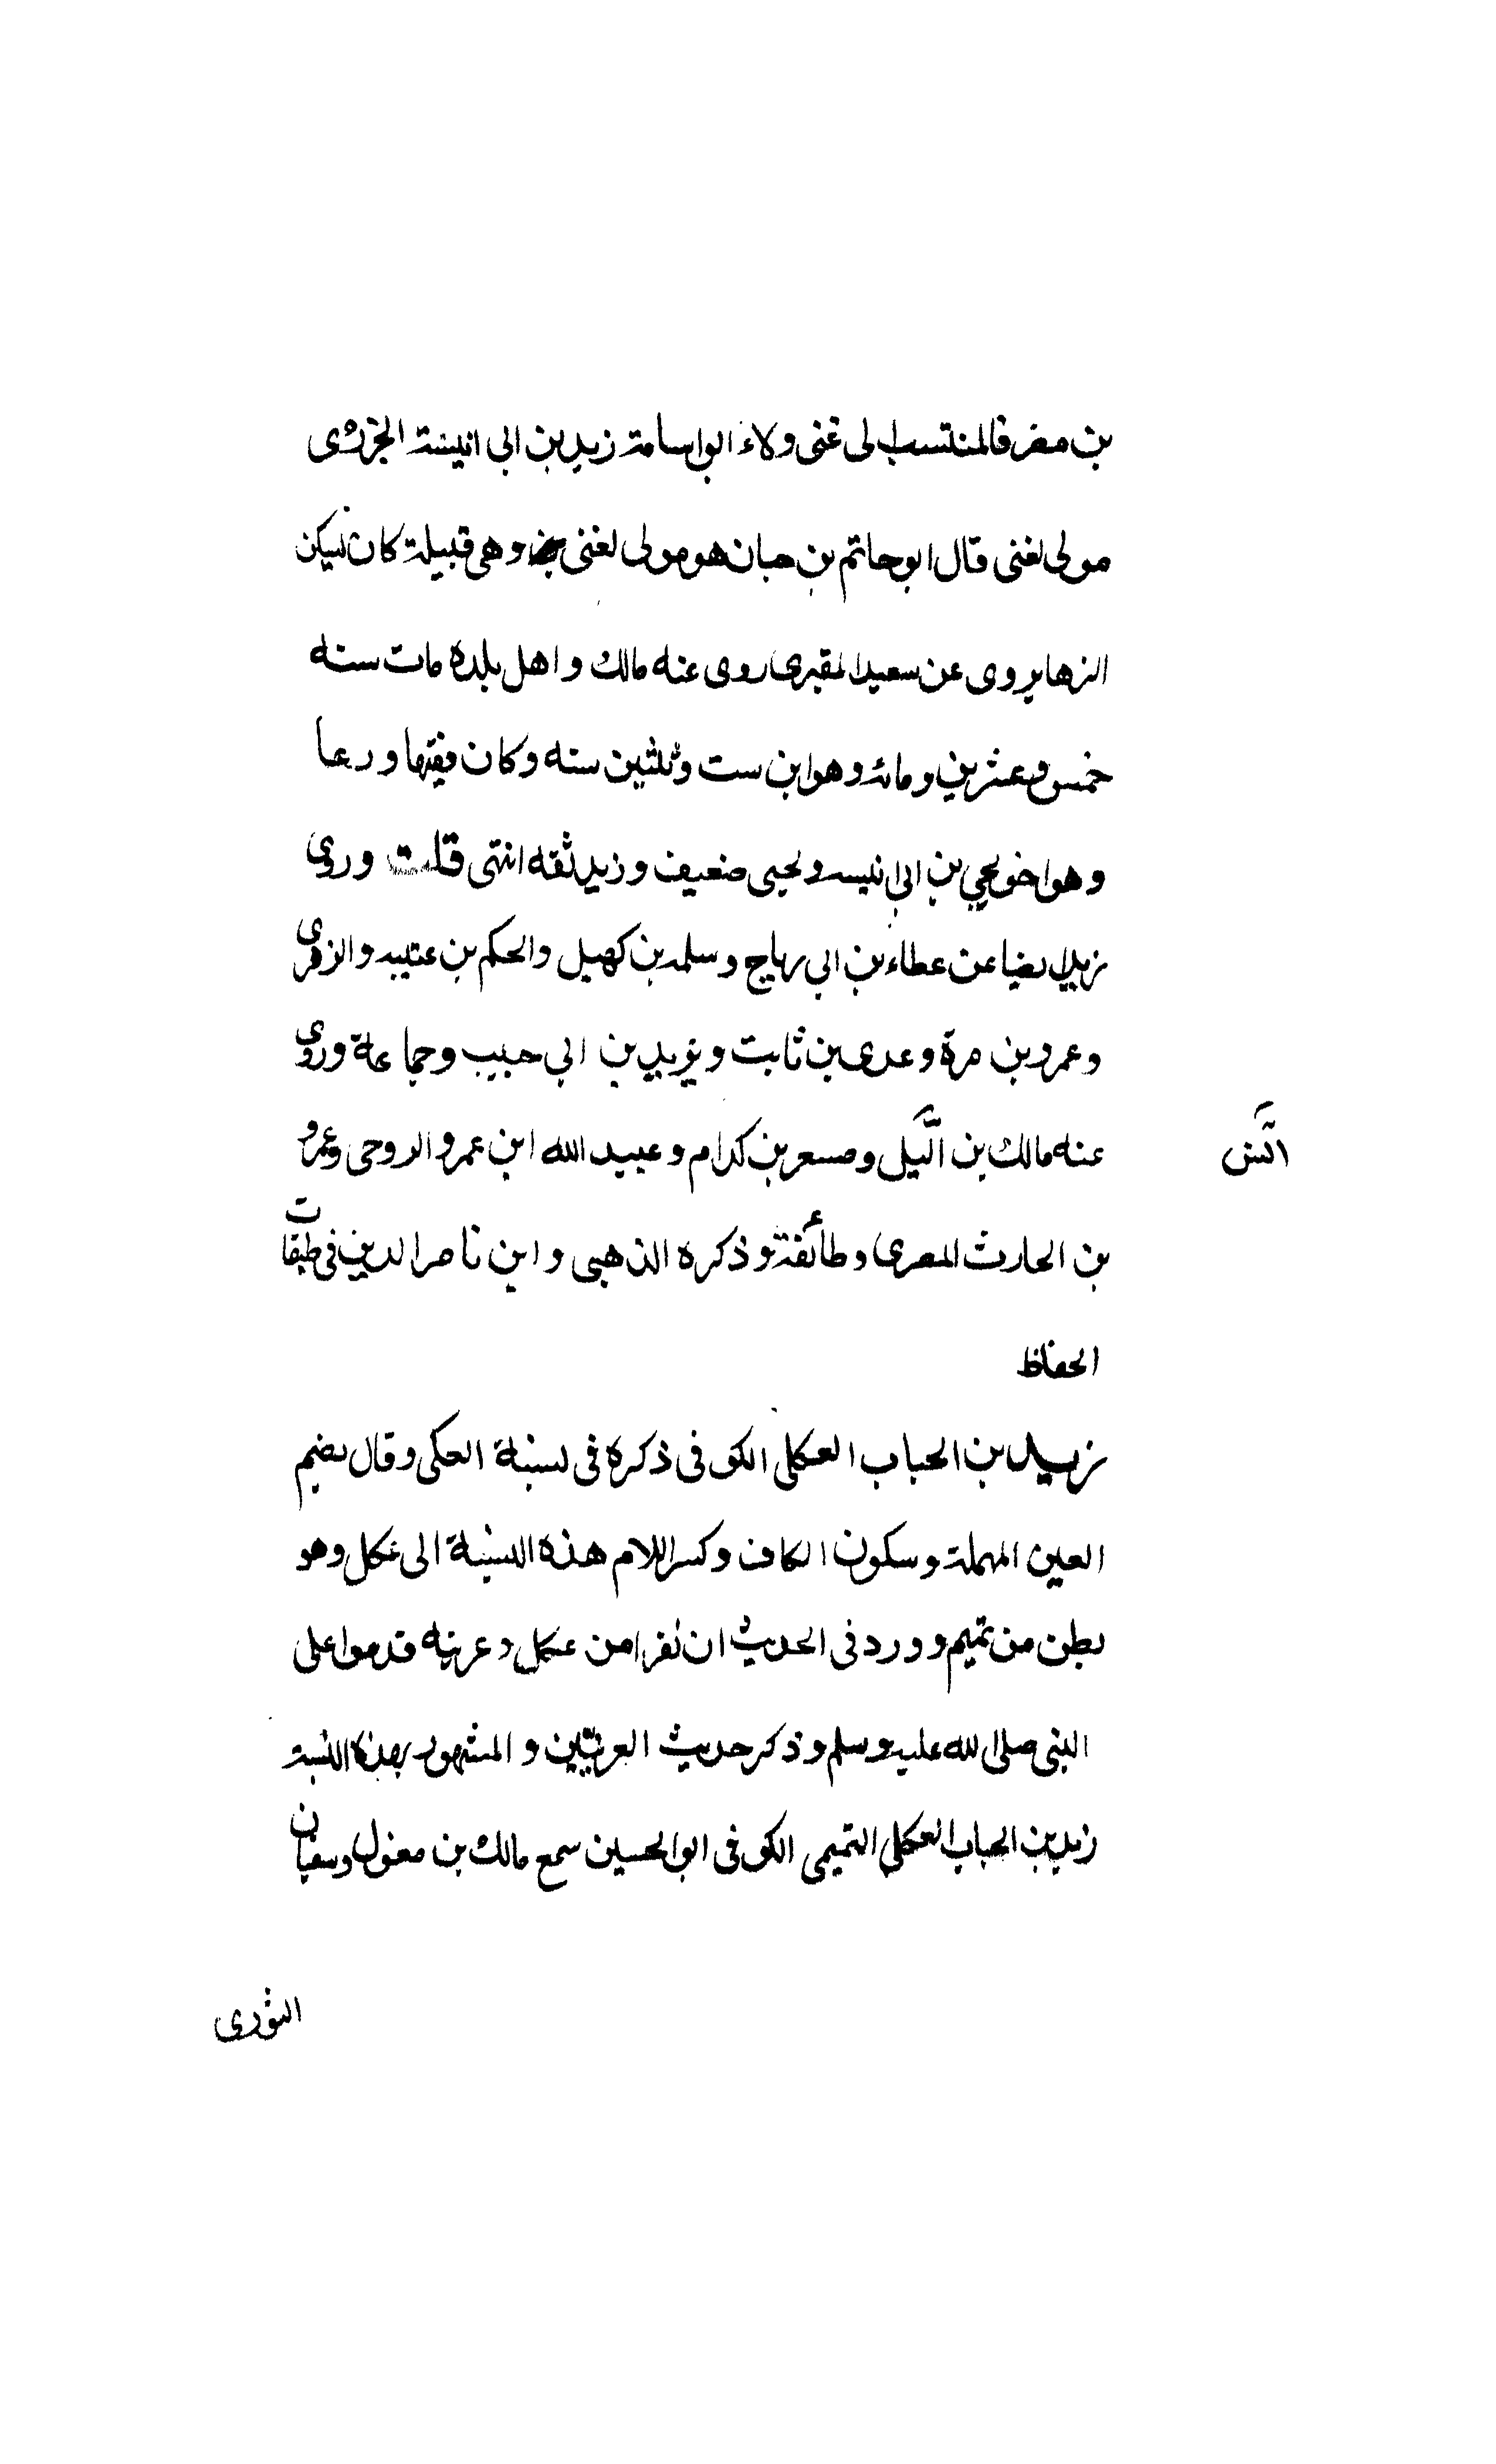 بن مضر فالمنتسب الى غنى ولاء ابو اسامة زيد بن ابى انيسة الجزرى
مولى لغنى قال ابو حاتم بن حبان هو مولى لغنى وهى قبيلة كان يسكن
الرها يروى عن سعيد المقبرى روى عنه مالك و اهل بلده مات سنه
خمس وعشرين ومائه وهو ابن ست وثلثين سنه وكان فقيها ورعا
وهو اخو يحيي بن ابى انيسه ويحيى ضعيف وزيد ثقه انتهى قلت وروى
زيد ايضا عن عطاء بن ابى رباح وسلمه بن كهيل والحكم بن عتيبه والزهرى
وعمرو بن مرة وعدى بن ثابت ويزيد بن ابي حبيب وجماعة وروى
عنه مالك بن ومسعر بن كدام وعبيد الله ابن عمرو الروحى وعمرو
انس
بن الحارث المصرى وطائفة وذكره الذهبى وابن ناصر الدين فى طبقات
الحفاظ
زيد بن الحباب العكلى الكوفى ذكره فى نسبة العكى وقال بضم
العين المهملة وسكون الكاف وكسر اللام هذه النسبة الى عكل وهو
بطن من تميم وورد فى الحديث ان نفرا من عكل وعرينه قدموا على
النبى صلى الله عليه وسلم وذكر حديث العرنيين والمشهور بهذه النسبة
زيد بن الحباب العكلى التميمى الكوفى ابو الحسين سمع مالك بن مغول وسفيان
الثورى